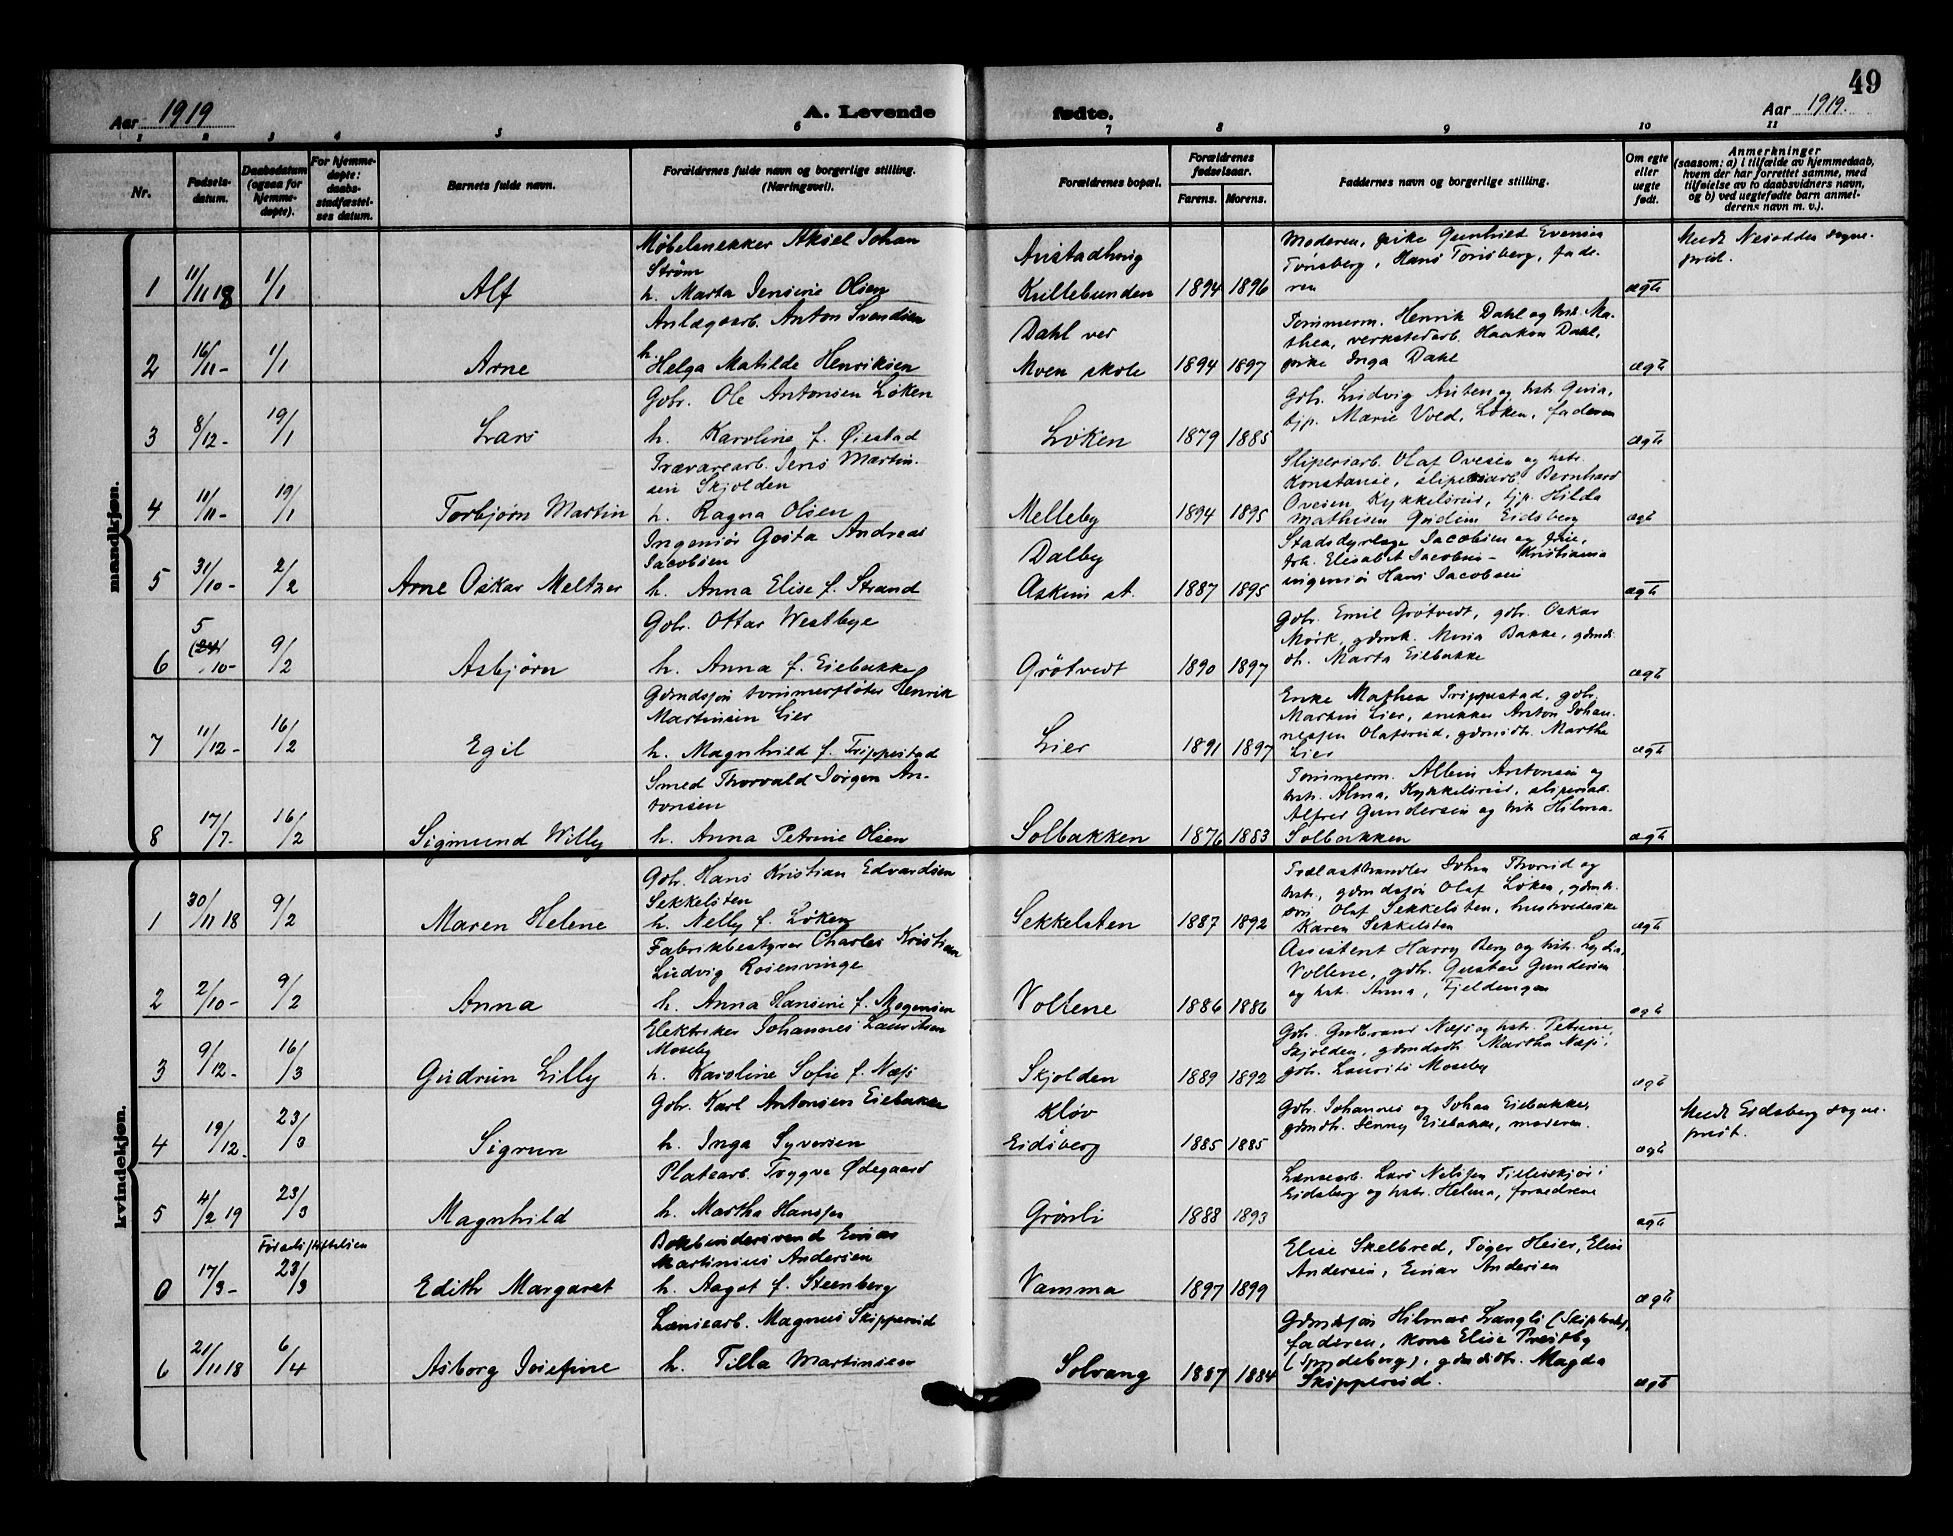 49
Aar 1919
A. Levende
fødte.
Aar 1919.
1 2 3 4 5 6 7 8 9 10 11
Nr.
Fødsels-
datum.
Daabsdatum
(ogsaa for
hjemme-
døpte).
For hjemme-
døpte:
daabs-
stadfæstel-
ses datum.
Barnets fulde navn.
Forældrenes fulde navn og borgerlige stilling.
(Næringsvei).
Forældrenes bopæl.
Forældrenes
fødselsaar.
Farens. Morens.
Faddernes navn og borgerlige stilling.
Om egte
eller
uegte
født.
Anmerkninger
(saasom: a) i tilfælde av hjemmedaab,
hvem der har forrettet samme, med
tilføielse av to daabsvidners navn,
og b) ved uegtefødte barn anmel-
derens navn m. v.).
mandkjøn.
1 11/11 18 1/1 Alf
Møbelsnekker Aksel Johan
Strøm
h. Marta Jensine Olsen
Krillebunden 1894 1896
Moderen, pike Gunhild Evensen
Tonsberg, Hans Tonsberg, fade-
ren
ægte
Meldt Nesodden sogne-
prest.
2 16/11- 1/1 Arne
Anlægsarb. Anton Svendsen
h.
Helga Matilde Henriksen
Dahl ved
Moen skole 1894 1897
Tømmerm. Henrik Dahl og hstr. Ma-
thea, verkstedarb. Haakon Dahl,
pike Inga Dahl
ægte
3 8/12- 19/1 Lars
Gbr. Ole Antonsen Løken
h. Karoline f. Øiestad
Løken 1879 1885
Gbr. Ludvig
tjp. Marie Vold, Løken, faderen
ægte
4 11/11- 19/1 Torbjørn Martin
Trævarearb. Jens Martin-
sen Skjolden
h. Ragna Olsen
Melleby 1894 1895
Sliperiarb. Olaf Ovesen og hstr.
Konstanse, sliperiarb. Bernhard
Ovesen Kykkelsrud, tjp. Hilda
Mathisen Gudim Eidsberg
ægte
5 31/10- 2/2 Arne Oskar Meltzer
Ingeniør Gøsta Andreas
Jacobsen
h. Anna Elise f. Strand
Dalby
Askim st. 1887 1895
Stadsdyrlæge Jacobsen og frue,
frk. Elisabet Jacobsen - Kristiania
ingeniør Hans Jacobsen
ægte
6 5/10- 9/2 Asbjørn
Gbr. Ottar Westbye
h. Anna f. Eiebakke
Grøtvedt 1890 1897
Gbr. Emil Grøtvedt, gbr. Oskar
Mørk, gdmk. Maria Bakke, gdmds-
dt. Marta Eiebakke
ægte
7 11/12- 16/2 Egil
Gdmdssøn tømmerfløter Henrik
Martinsen Lier
h. Magnhild f. Trippestad
Lier 1891 1897
Enke Mathea Trippestad, gbr.
Martin Lier, snekker Anton Johan-
nessen Olafsrud, gdmdt. Martha
Lier
ægte
8 17/7- 16/2 Sigmund Willy
Smed Thorvald Jørgen An-
tonsen
h. Anna Petrine Olsen
Solbakken 1876 1883
Tømmerm. Albin Antonsen og
hstr. Alma, Kykkelsrud, sliperiarb.
Alfred Gundersen og hstr. Hilma
Solbakken
ægte
kvindekjøn.
1 30/11 18 9/2 Maren Helene
Gbr. Hans Kristian Edvardsen
Sekkelsten
h. Nelly f. Løken
Sekkelsten 1887 1892
Trælasthandler Johan Thorud og
hstr., gdmdssøn Olaf Løken, gdmds-
søn Olaf Sekkelsten,
Karen Sekkelsten
ægte
2 2/10- 9/2 Anna
Fabrikbestyrer Charles Kristian
Ludvig Rosenvinge
h. Anna Hansine f. Mogensen
Voltene 1886 1886
Assistent Harry Berg og hstr. Lydia,
Voltene, gbr. Gustav Gundersen
og hstr. Anna, Fjeldengen
ægte
3 9/12- 16/3 Gudrun Lilly
Elektriker Johannes Lauritsen
Moseby
h. Karoline Sofie f. Næss
Skjolden 1889 1892
Gbr. Gudbrand Næss og hstr. Petrine,
Skjolden, gdmdsdt. Martha Næss,
gbr. Laurits Moseby
ægte
4 19/12- 23/3 Sigrun
Gbr. Karl Antonsen Eiebakke
h. Inga Syversen
Kløv
Eidsberg 1885 1885
Gbr. Johannes og Johan Eiebakke,
gdmdt. Jenny Eiebakke, moderen.
ægte
Meldt Eidsberg sogne-
prest.
5 4/2 19 23/3 Magnhild
Platearb. Trygve Ødegaard
h. Martha Hansen
Grønli 1888 1893
Lænsearb. Lars Nilsen Tillerskjør i
Eidsberg og hstr. Helma, forældrene
ægte
Fødselsstiftelsen
0 17/3- 23/3 Edith Margaret
Bokbindersvend Einar
Martinius Andersen
h. Aagot f. Steenberg
Vamma 1897 1899
Elise Skelbred, Tøger Heier, Elise
Andersen, Einar Andersen
ægte
6 21/11 18 6/4 Asborg Josefine
Lænsearb. Magnus Skippereid
h. Tilla Martinsen
Solvang 1887 1884
Gdmdssøn Hilmar Langli
faderen, kone Elise Prestby
(Spydeberg), gdmdsdt. Magda
Skippereid.
ægte